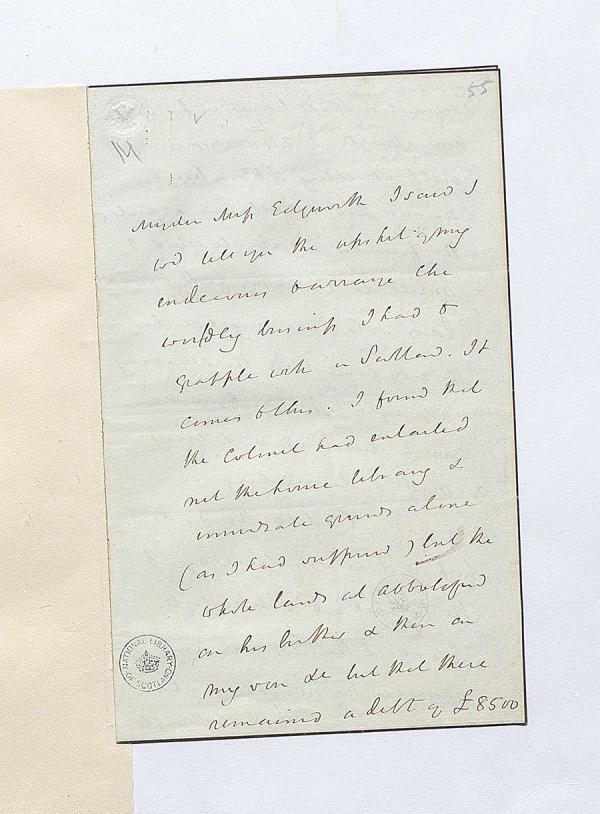 55
14
My dear Miss Edgeworth I said I
wd tell you the upshot of my
endeavours to arrange the
worldly business I had to
grapple with in Scotland. It
comes to this. I found that
the Colonel had entailed
not the house library &
immediate grounds alone
(as I had supposed) but the
whole lands at Abbotsford
on his brother & then on
my son &c but that there
remained a debt of £8500
NATIONAL LIBRARY
OF SCOTLAND